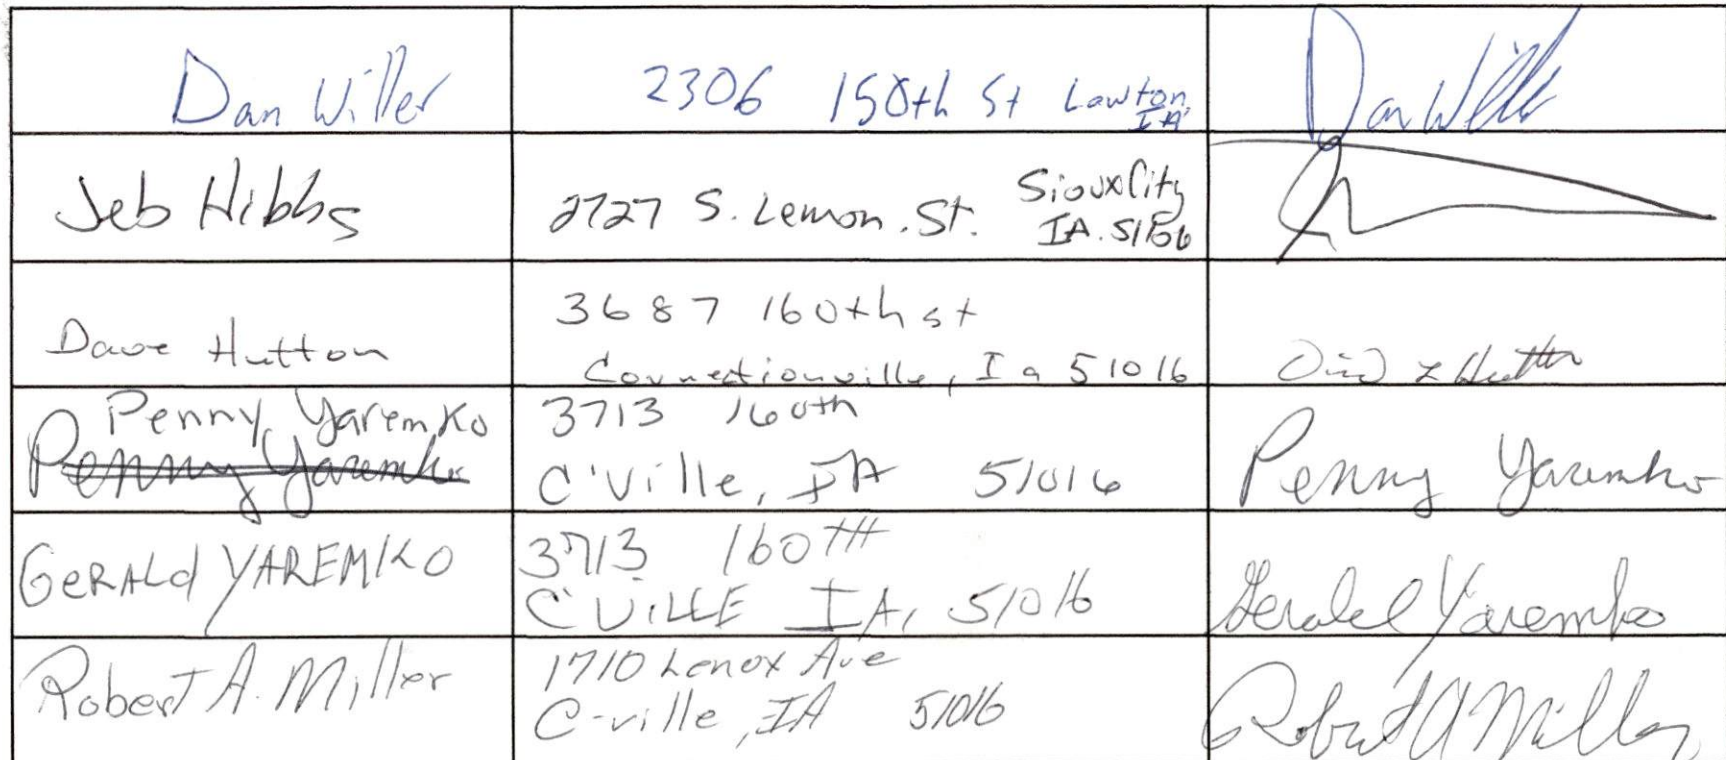 Dan Willer 2306 150th St Lawton, IA Dan Will
Jeb Hibbs 2727 S. Lemon. St. Sioux City
IA. 51106
Dave Hutton 3687 160th st
Correctionville, Ia 51016
Penny Yaremko 3713 160th
Penny Yaremko C'Ville, IA 51016 Penny Yaremko
GERALd YAREMKO 3713 160TH
C'ViLLE IA, 51016 Gerald Yaremko
Robert A. Miller 1710 Lenox Ave
C-ville, IA 51016 Robert A Miller